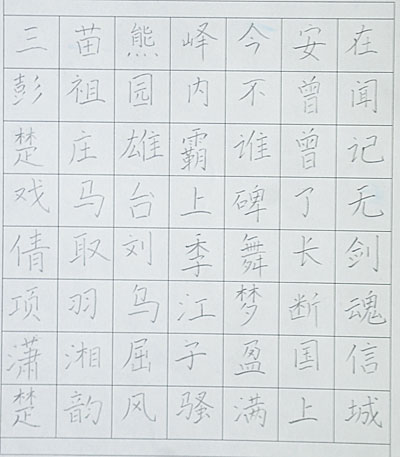 三苗熊峰今安在
彭祖园内不曾闻
楚庄雄霸谁曾记
戏马台上碑了无
倩取刘季舞长剑
项羽乌江梦断魂
潇湘屈子盈国信
楚韵风骚满上城